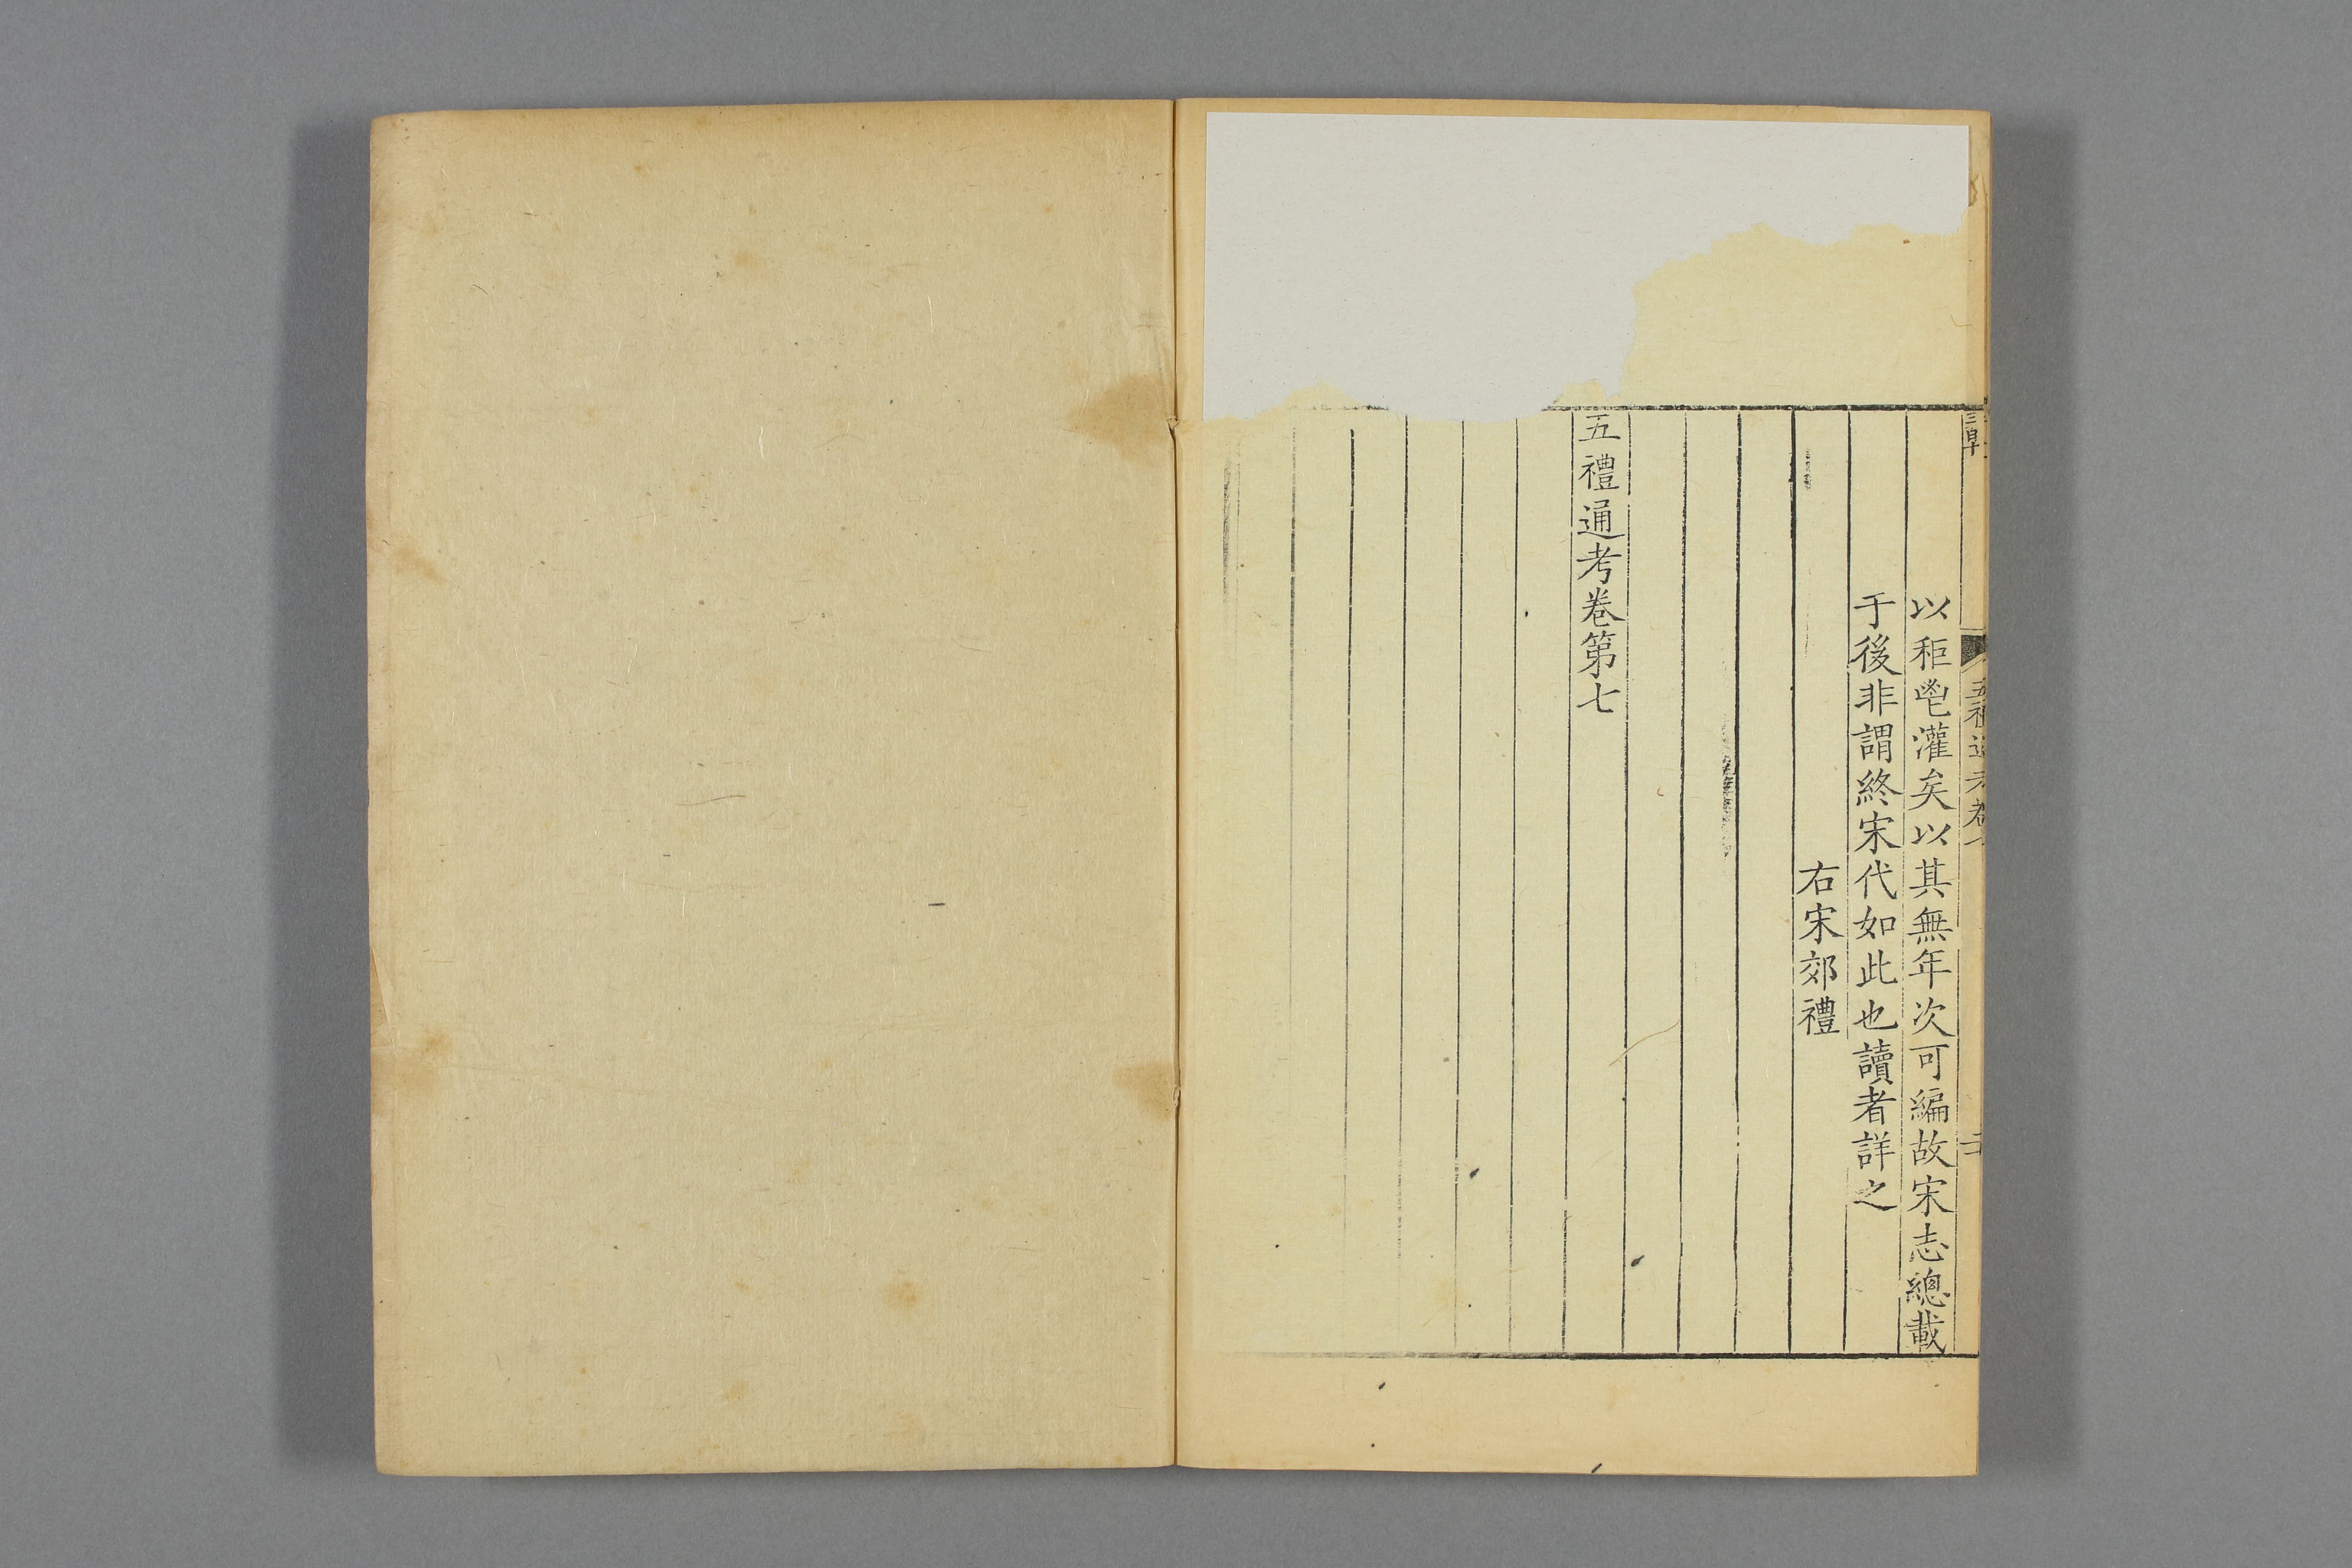 以秬鬯灌矣以其無年次可編故宋志總載
于後非謂終宋代如此也讀者詳之
右宋郊禮
五禮通考卷第七